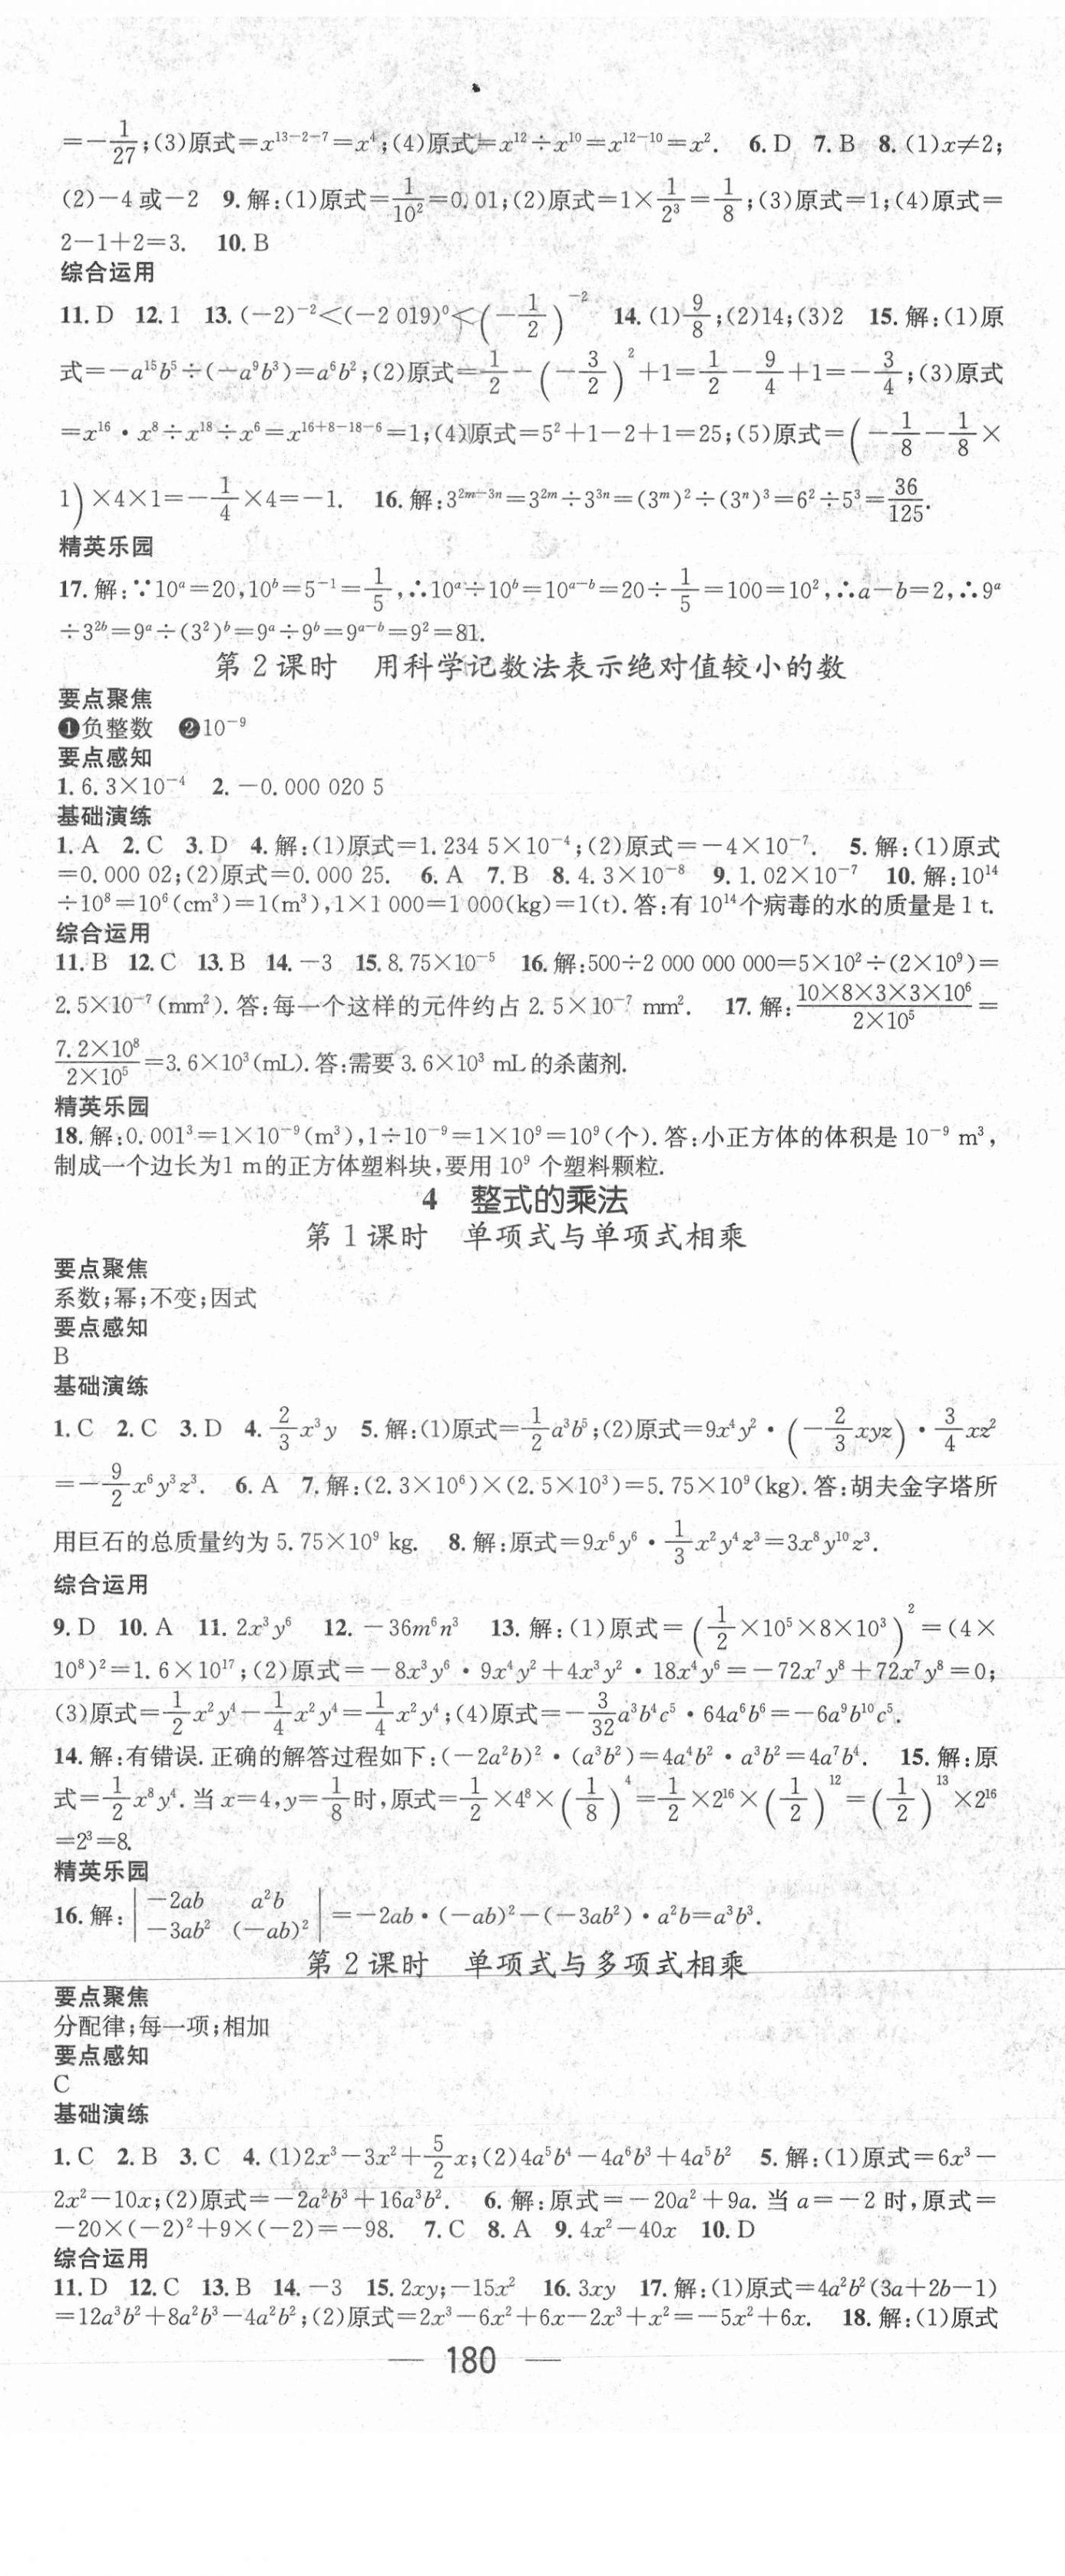 =-1/27;(3)原式=x¹³⁻²⁻⁷=x⁴;(4)原式=x¹²÷x¹⁰=x¹²⁻¹⁰=x². 6. D 7. B 8. (1)x≠2;
(2)-4或-2 9. 解:(1)原式=1/10²=0.01;(2)原式=1×1/2³=1/8;(3)原式=1;(4)原式=
2-1+2=3. 10. B
综合运用
11. D 12. 1 13. (-2)⁻²<(-2 019)⁰<(-1/2)⁻² 14. (1)9/8;(2)14;(3)2 15. 解:(1)原
式=-a¹⁵b⁵÷(-a⁹b³)=a⁶b²;(2)原式=1/2-(-3/2)²+1=1/2-9/4+1=-3/4;(3)原式
=x¹⁶·x⁸÷x¹⁸÷x⁶=x¹⁶⁺⁸⁻¹⁸⁻⁶=1;(4)原式=5²+1-2+1=25;(5)原式=(-1/8-1/8×
1)×4×1=-1/4×4=-1. 16. 解:3²ᵐ⁻³ⁿ=3²ᵐ÷3³ⁿ=(3ᵐ)²÷(3ⁿ)³=6²÷5³=36/125.
精英乐园
17. 解:∵10ᵃ=20,10ᵇ=5⁻¹=1/5,∴10ᵃ÷10ᵇ=10ᵃ⁻ᵇ=20÷1/5=100=10²,∴a-b=2,∴9ᵃ
÷3²ᵇ=9ᵃ÷(3²)ᵇ=9ᵃ÷9ᵇ=9ᵃ⁻ᵇ=9²=81.
第2课时 用科学记数法表示绝对值较小的数
要点聚焦
❶负整数 ❷10⁻⁹
要点感知
1. 6.3×10⁻⁴ 2. -0.000 020 5
基础演练
1. A 2. C 3. D 4. 解:(1)原式=1.234 5×10⁻⁴;(2)原式=-4×10⁻⁷. 5. 解:(1)原式
=0.000 02;(2)原式=0.000 25. 6. A 7. B 8. 4.3×10⁻⁸ 9. 1.02×10⁻⁷ 10. 解:10¹⁴
÷10⁸=10⁶(cm³)=1(m³),1×1 000=1 000(kg)=1(t).答:有10¹⁴个病毒的水的质量是1 t.
综合运用
11. B 12. C 13. B 14. -3 15. 8.75×10⁻⁵ 16. 解:500÷2 000 000 000=5×10²÷(2×10⁹)=
2.5×10⁻⁷(mm²).答:每一个这样的元件约占2.5×10⁻⁷ mm². 17. 解:(10×8×3×3×10⁶)/(2×10⁵)=
(7.2×10⁸)/(2×10⁵)=3.6×10³(mL).答:需要3.6×10³ mL的杀菌剂.
精英乐园
18. 解:0.001³=1×10⁻⁹(m³),1÷10⁻⁹=1×10⁹=10⁹(个).答:小正方体的体积是10⁻⁹ m³,
制成一个边长为1 m的正方体塑料块,要用10⁹个塑料颗粒.
4 整式的乘法
第1课时 单项式与单项式相乘
要点聚焦
系数;幂;不变;因式
要点感知
B
基础演练
1. C 2. C 3. D 4. 2/3x³y 5. 解:(1)原式=1/2a³b⁵;(2)原式=9x⁴y²·(-2/3xyz)·3/4xz²
=-9/2x⁶y³z³. 6. A 7. 解:(2.3×10⁶)×(2.5×10³)=5.75×10⁹(kg).答:胡夫金字塔所
用巨石的总质量约为5.75×10⁹ kg. 8. 解:原式=9x⁶y⁶·1/3x²y⁴z³=3x⁸y¹⁰z³.
综合运用
9. D 10. A 11. 2x³y⁶ 12. -36m⁶n³ 13. 解:(1)原式=(1/2×10⁵×8×10³)²=(4×
10⁸)²=1.6×10¹⁷;(2)原式=-8x³y⁶·9x⁴y²+4x³y²·18x⁴y⁶=-72x⁷y⁸+72x⁷y⁸=0;
(3)原式=1/2x²y⁴-1/4x²y⁴=1/4x²y⁴;(4)原式=-3/32a³b⁴c⁵·64a⁶b⁶=-6a⁹b¹⁰c⁵.
14. 解:有错误.正确的解答过程如下:(-2a²b)²·(a³b²)=4a⁴b²·a³b²=4a⁷b⁴. 15. 解:原
式=1/2x⁸y⁴.当x=4,y=1/8时,原式=1/2×4⁸×(1/8)⁴=1/2×2¹⁶×(1/2)¹²=(1/2)¹³×2¹⁶
=2³=8.
精英乐园
16. 解:|-2ab a²b|
|-3ab² (-ab)²|=-2ab·(-ab)²-(-3ab²)·a²b=a³b³.
第2课时 单项式与多项式相乘
要点聚焦
分配律;每一项;相加
要点感知
C
基础演练
1. C 2. B 3. C 4. (1)2x³-3x²+5/2x;(2)4a⁵b⁴-4a⁶b³+4a⁵b² 5. 解:(1)原式=6x³-
2x²-10x;(2)原式=-2a²b³+16a³b². 6. 解:原式=-20a²+9a.当a=-2时,原式=
-20×(-2)²+9×(-2)=-98. 7. C 8. A 9. 4x²-40x 10. D
综合运用
11. D 12. C 13. B 14. -3 15. 2xy;-15x² 16. 3xy 17. 解:(1)原式=4a²b²(3a+2b-1)
=12a³b²+8a²b³-4a²b²;(2)原式=2x³-6x²+6x-2x³+x²=-5x²+6x. 18. 解:(1)原式
— 180 —